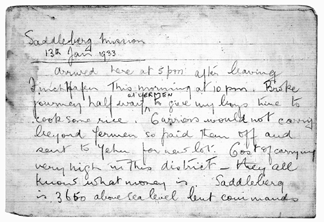 Saddleberg Mission
13th Jan 1933
Arrived here at 5pm after leaving
Finschhafen this morning at 10 pm. Broke
journey half way to give my boys time to
cook some rice. Carriers would not carry
beyond Yermen so paid them off and
sent to for new lot. Cost of carrying
very high in this district - they all
know what money is Saddleberg
is 3600 above sea level but commands